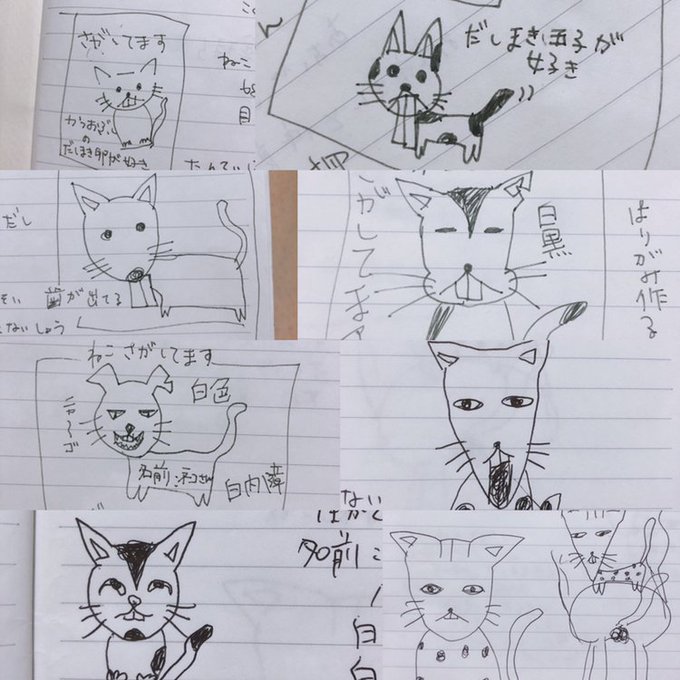 さがしてます
かつおぶし
の
だしまき卵が好き
ねこ
目
だしまき玉子が
好き
ん
だし
歯が出てる
ないしょう
さがしてます
白黒
はりがみ作る
ねこさがしてます
ニャーゴ
白色
名前:ネコさん
白内障
はない
名前
白
白